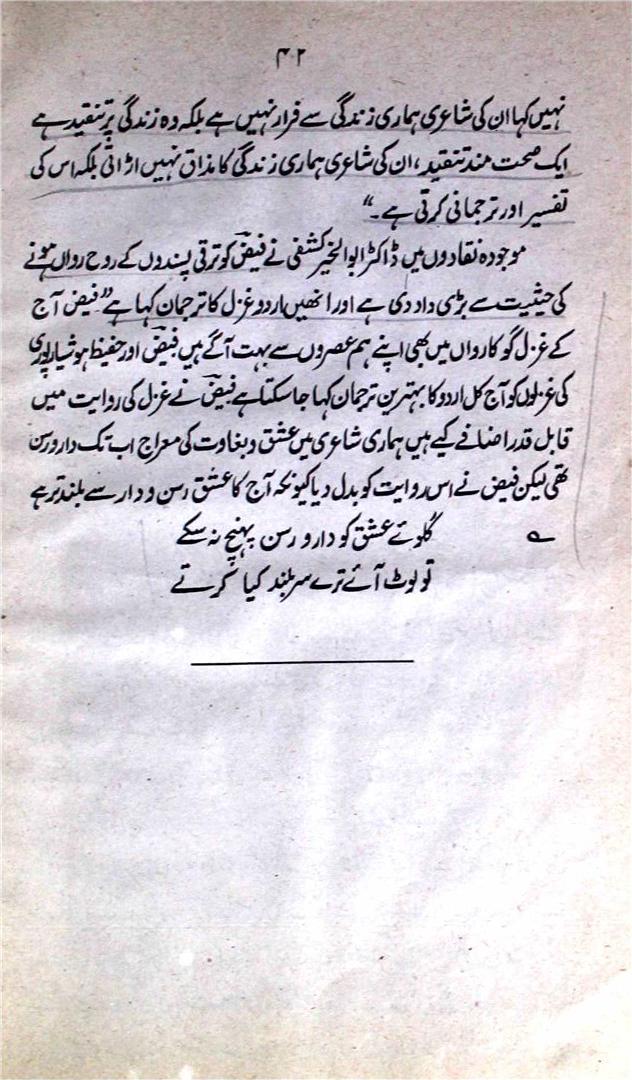 ۴۲
نہیں کہا ان کی شاعری ہماری زندگی سے فرار نہیں ہے بلکہ وہ زندگی پر تنقید ہے
ایک صحت مند تنقید، ان کی شاعری ہماری زندگی کا مذاق نہیں اڑاتی بلکہ اس کی
تفسیر اور ترجمانی کرتی ہے۔"
موجودہ نقادوں میں ڈاکٹر ابوالخیر کشفی نے فیضؔ کو ترقی پسندوں کے روح رواں ہونے
کی حیثیت سے بڑی داد دی ہے اور انھیں اردو غزل کا ترجمان کہا ہے "فیض آج
کے غزل گو کارواں میں بھی اپنے ہم عصروں سے بہت آگے ہیں، فیضؔ اور حفیظ ہوشیارپوری
کی غزلوں کو آج کل اردو کا بہترین ترجمان کہا جا سکتا ہے فیضؔ نے غزل کی روایت میں
قابل قدر اضافے کیے ہیں ہماری شاعری میں عشق و بغاوت کی معراج اب تک دار و رسن
تھی لیکن فیض نے اس روایت کو بدل دیا کیونکہ آج کا عشق رسن و دار سے بلند تر ہے
؎ گلوئے عشق کو دار و رسن پہنچ نہ سکے
تو لوٹ آئے ترے سر بلند کیا کرتے